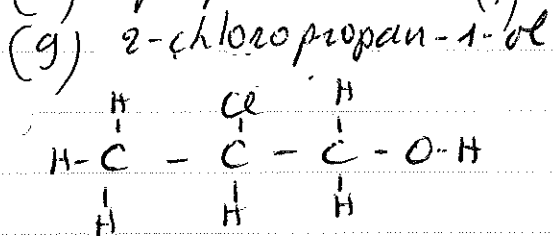 (g) 2-chloropropan-1-ol
H Cl H
H - C - C - C - O - H
H H H